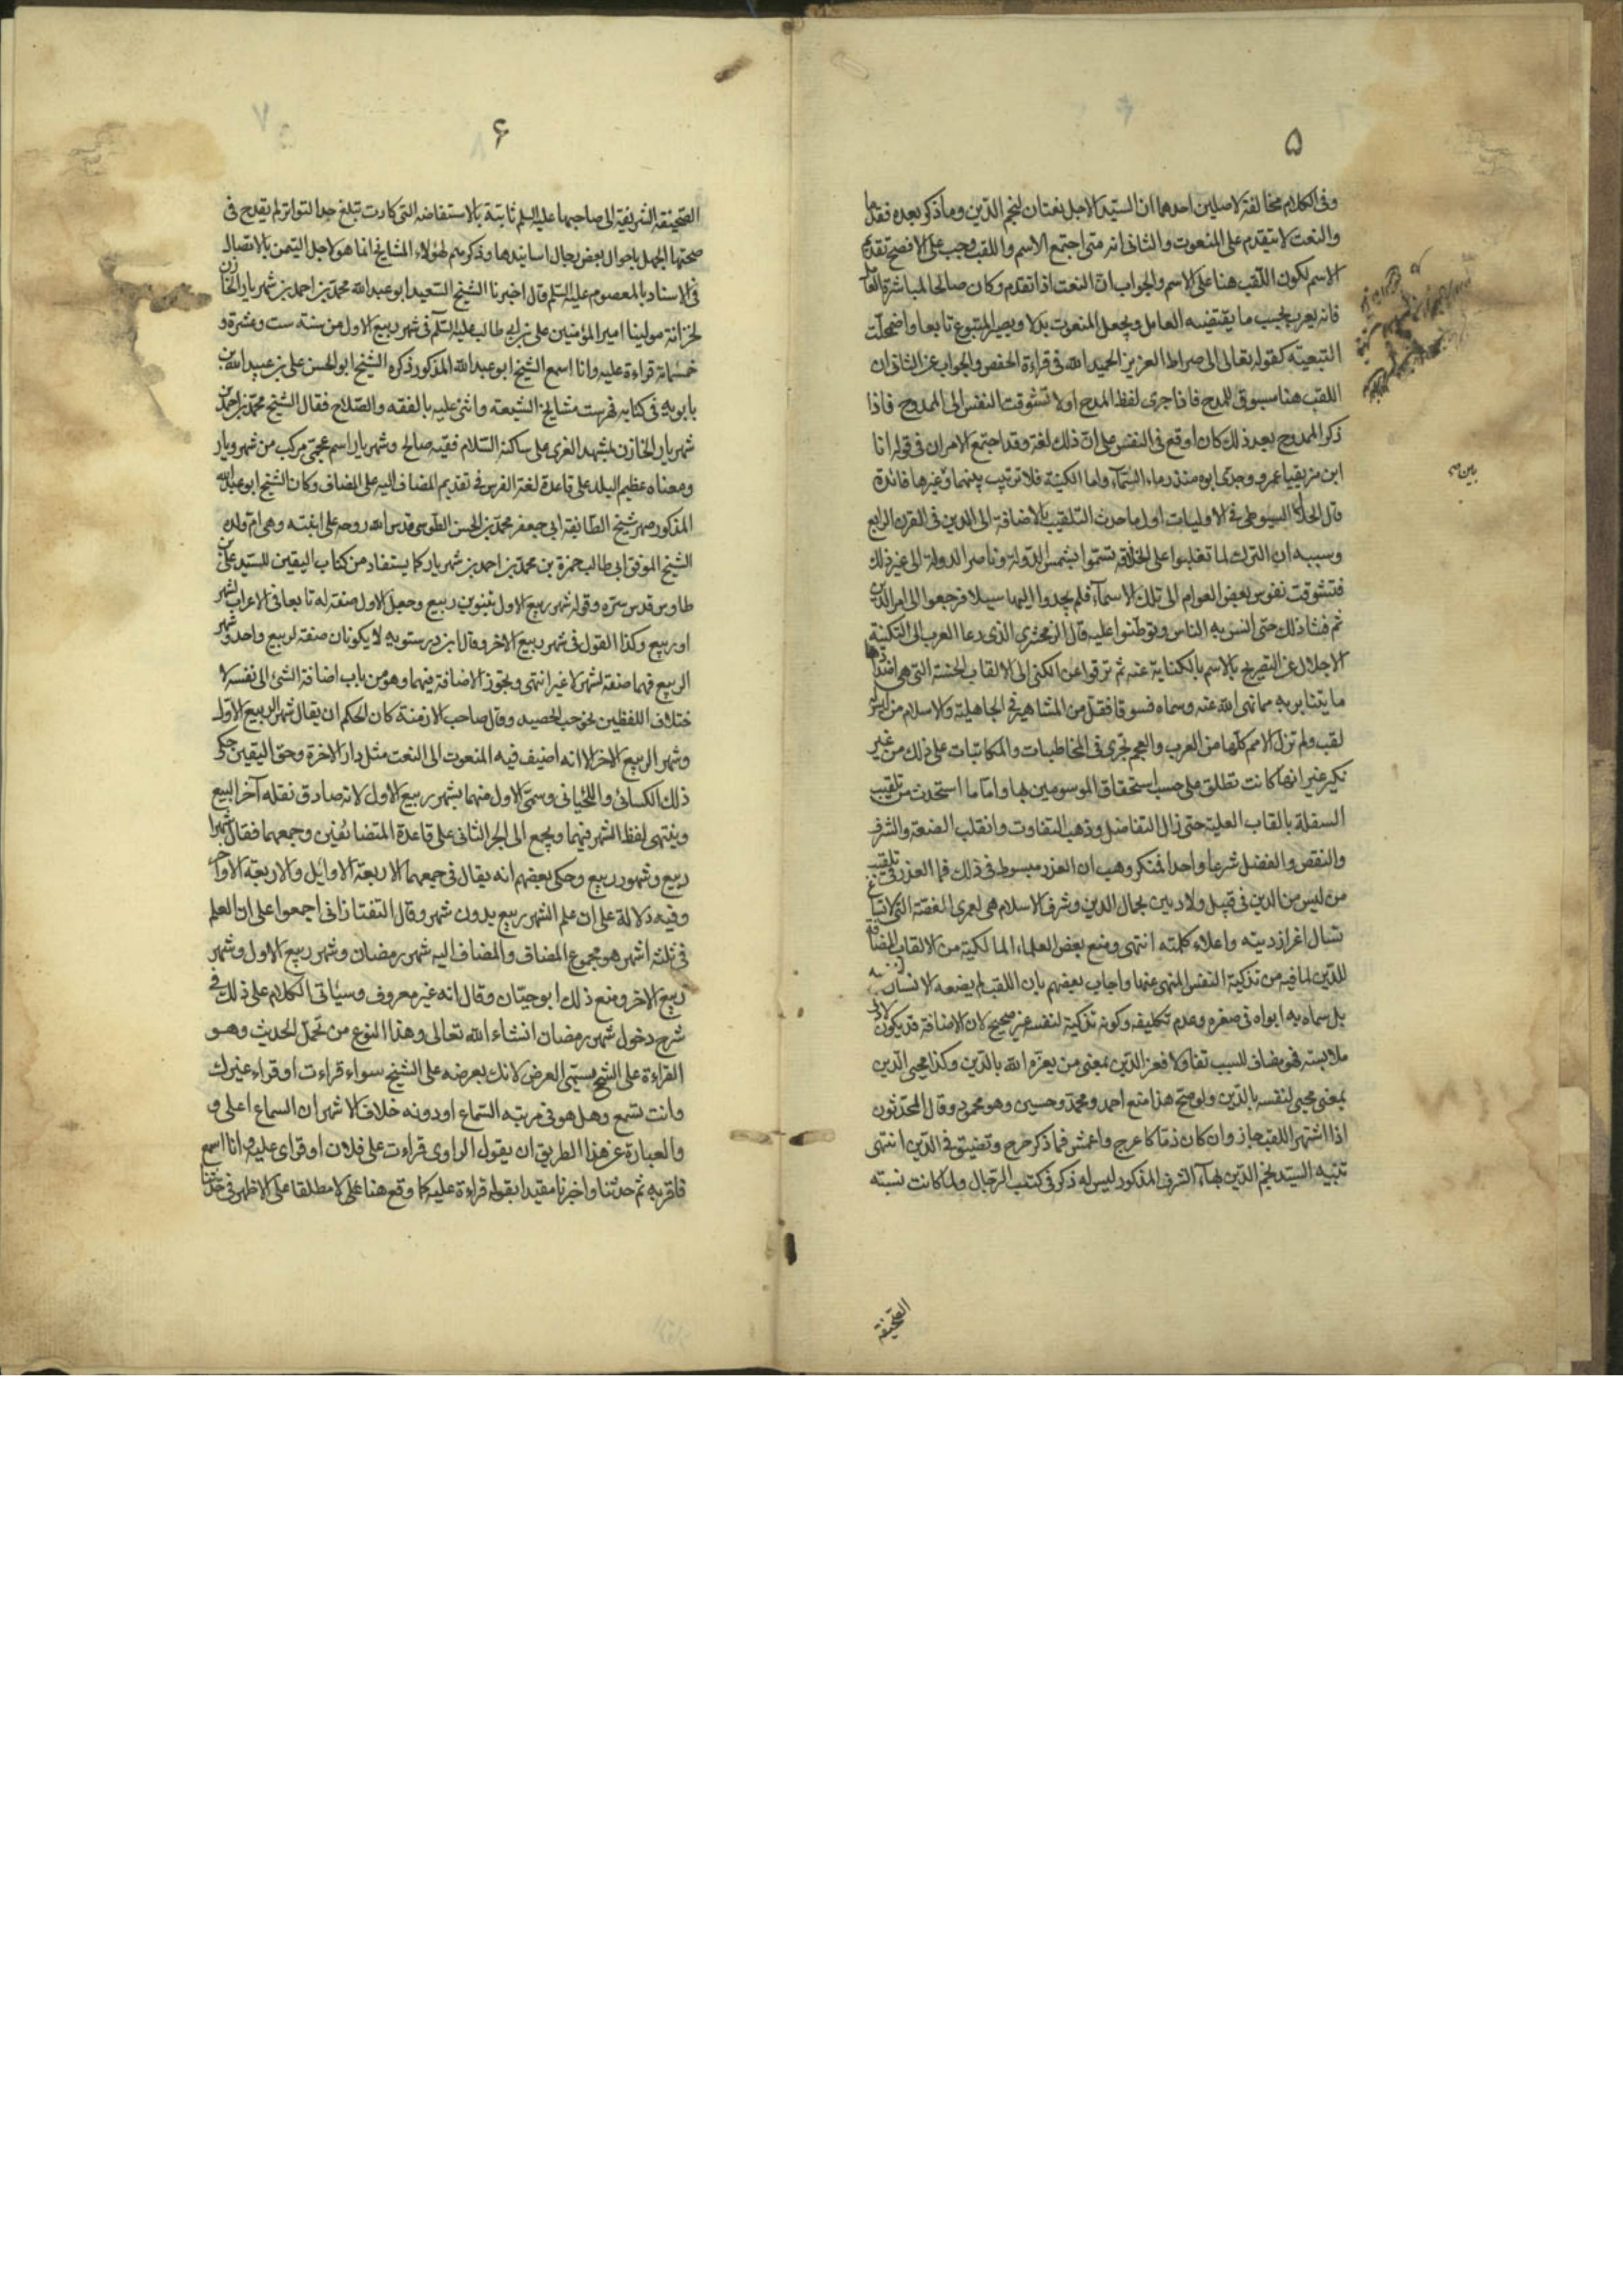 ۵
وفى الكلام مخالفة لاصلين احدهما ان السيّد الاجل نعتان لنجم الدّين وما ذكر بعده فقدما
والنعت لا يتقدم على المنعوت والثانى انه متى اجتمع الاسم واللقب وجب على الافصح تقديم
الاسم لكون اللقب هنا على الاسم والجواب ان النعت اذا تقدم وكان صالحا لمباشرة العامل
فانه يعرب بحسب ما يقتضيه العامل ويجعل المنعوت بدلا ويصير المتبوع تابعا واضمحلت
التبعيّه كقوله تعالى الى صراط العزيز الحميد الله فى قراءة الخفض والجواب عن الثانى ان
اللقب هنا مسوق للمدح فاذا جرى لفظ المدح اولا تشوقت النفس الى الممدوح فاذا
ذكر الممدوح بعد ذلك كان اوقع فى النفس على انّ ذلك لغة وقد اجتمع الامران فى قوله انا
ابن مزيقيا عمرو وجدّى ابوه منذر ماء السّمآء واما الكنية فلا ترتيب بينهما وغيرها فائدة
قال الجلال السيوطى فى الاوليات اول ما حدث التلقيب بالاضافة الى الدين فى القرن الرابع
وسببه ان الترك لما تغلبوا على الخلافه تسّموا بشمس الدّوله وناصر الدولة الى غير ذلك
فتشوقت نفوس بعض العوام الى تلك الاسمآء فلم يجدوا اليها سبيلا فرجعوا الى امر الدين
ثم فشا ذلك حتى انس به الناس وتوطنوا عليه قال الزمخشرى الذى دعا العرب الى التكنية
الاجلال عن التصريح بالاسم بالكناية عنه ثم ترقوا عن الكنى الى الالقاب الحسنة التى هى
ما يتنابز به مما نهى الله عنه وسماه فسوقا فقل من المشاهير فى الجاهلية والاسلام من ليس له
لقب ولم تزل الامم كلها من العرب والعجم تجرى فى المخاطبات والمكاتبات على ذلك من غير
نكير غير انها كانت تطلق على حسب استحقاق الموسومين بها واما ما استحدث من تلقيب
السفلة بالقاب العلية حتى زال التفاضل وذهب التفاوت وانقلب الضعة والشرف
والنقص والفضل شرعا واحدا فمنكر وهب ان العذر مبسوط فى ذلك فما العذر فى تلقيب
من ليس من الدين فى قبيل ولا دبير بجمال الدين وشرف الاسلام هى لعمرى الغصّة التى لا تساغ
نسال اعزاز دينه واعلاء كلمته انتهى ومنع بعض العلماء المالكية من الالقاب المضافة
للدّين لما فيه من تزكية النفس المنهى عنها واجاب بعضهم بان اللقب لم يضعه الانسان
بل سماه به ابواه فى صغره وعدم تكليفه وكونه تزكية لنفسه غير صحيح لان الاضافة قد يكون
ملابسته فهو مضاف للسبب تفاولا فعز الدّين بمعنى من يعزه الله بالدّين وكذا محيى الدّين
بمعنى محيى لنفسه بالدّين ولو صحّ هذا منع احمد ومحمّد وحسين وهو محمود وقال المحدّثون
اذا اشتهر اللقب جاز وان كان ذمّا كاعرج واعمش فما ذكر حرج وتضييق فى الدّين انتهى
تنبيه السيّد نجم الدّين بهآء الشرف المذكور ليس له ذكر فى كتب الرّجال ولما كانت نسبته
الصّحيفة
۶
الصّحيفة الشريفة الى صاحبها عليه السلم ثابتة بالاستفاضه التى كادت تبلغ حد التواتر لم يقدح فى
صحتها الجهل باحوال بعض رجال اسانيدها وذكرهم لهؤلاء المشايخ انما هو لاجل التيمن بالاتصال
فى الاسناد بالمعصوم عليه السّلم قال اخبرنا الشيخ السّعيد ابو عبد الله محمّد بن احمد بن شهريار الخازن
لخزانة مولينا امير المؤمنين على بن ابى طالب عليه السّلم فى شهر ربيع الاول من سنة ست وعشرة و
خمسمائة قراءة عليه وانا اسمع الشيخ ابو عبد الله المذكور ذكره الشيخ ابو الحسن على بن عبيد الله بن
بابويه فى كتابه فهرست مشايخ الشيعة واثنى عليه بالفقه والصّلاح فقال الشيخ محمّد بن احمد بن
شهريار الخازن بمشهد الغرى على ساكنه السّلام فقيه صالح وشهريار اسم عجمّى مركب من شهر ويار
ومعناه عظيم البلد على قاعدة لغة الفرس فى تقديم المضاف اليه على المضاف وكان الشيخ ابو عبد الله
المذكور صهر شيخ الطّائفة ابى جعفر محمّد بن الحسن الطّوسى قدس الله روحه على ابنته وهى ام ولده
الشيخ الموفق ابى طالب حمزة بن محمّد بن احمد بن شهريار كما يستفاد من كتاب اليقين للسّيد على بن
طاوس قدس سرّه وقوله شهر ربيع الاول بتنوين ربيع وجعل الاول صفة له تابعا فى الاعراب لشهر
او ربيع وكذا القول فى شهر ربيع الاخر وقال ابن درستويه لا يكونان صفة لربيع واحد وشهر
الربيع فهما صفة لشهر لا غير انتهى ويجوز الاضافة فيهما وهو من باب اضافة الشئ الى نفسه لا
ختلاف اللفظين نحو حب الحصيد وقال صاحب الازمنة كان الحكم ان يقال شهر الربيع الاول
وشهر الربيع الاخر الا انه اضيف فيه المنعوت الى النعت مثل دار الاخرة وحق اليقين حكى
ذلك الكسائى واللّحيانى وسمّى الاول منهما بشهر ربيع الاول لانه صادق نقله آخر الربيع
وينتهى لفظ الشهر فيهما ويجمع الى الجر الثانى على قاعدة المتضائفين وجمعهما فقال شهرا
ربيع وشهور ربيع وحكى بعضهم انه يقال فى جميعهما الاربعة الاوايل والاربعة الاواخر
وفيه دلالة على ان علم الشهر ربيع بدون شهر وقال التفتازانى اجمعوا على ان العلم
فى ثلثة اشهر هو مجموع المضاف والمضاف اليه شهر رمضان وشهر ربيع الاول وشهر
ربيع الاخر ومنع ذلك ابو حيّان وقال انه غير معروف وسيأتى الكلام على ذلك فى
شرح دخول شهر رمضان انشاء الله تعالى وهذا النوع من تحمّل الحديث وهو
القراءة على الشيخ يسمّى العرض لانك بعرضه على الشيخ سواء قراءت او قراء غيرك
وانت تسمع وهل هو فى مرتبه السّماع او دونه خلاف الاشهر ان السماع اعلى و
والعبارة عن هذا الطريق ان يقول الراوى قراءت على فلان او قراى عليه وانا اسمع
فاقر به ثم حدثنا واخبرنا مقيدا بقوله قراءة عليه كما وقع هنا على لا مطلقا على الاظهر فى حدثنا